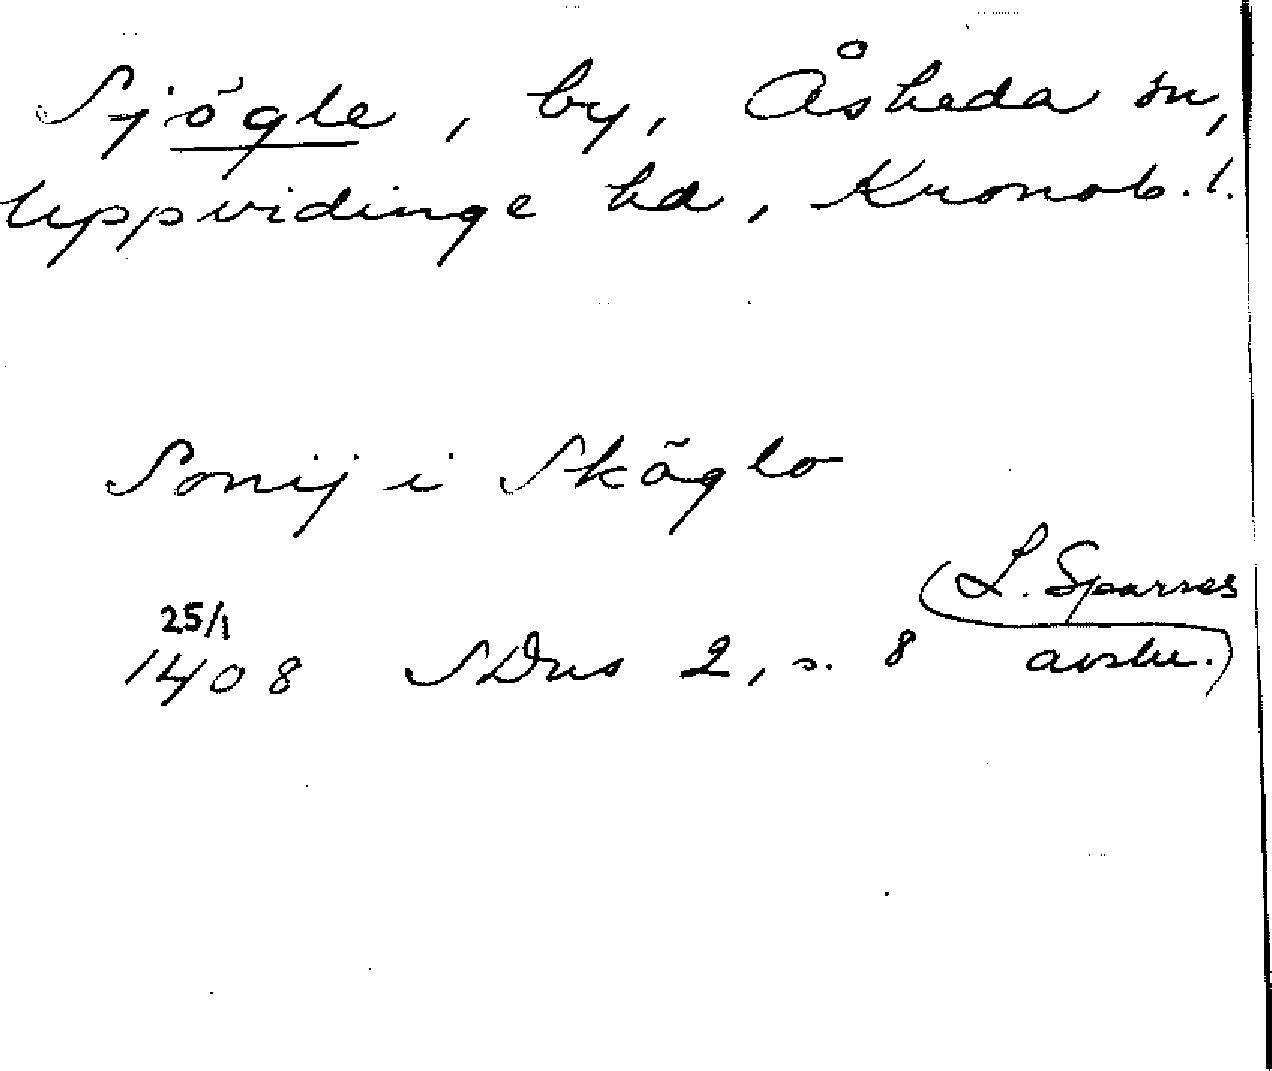 Sjögle, by, Åsheda sn,
Uppvidinge hd, Kronob. l.
Sonij i Skäglo
(L. Sparres
25/1
1408 SDns 2, s. 8 avskr.)